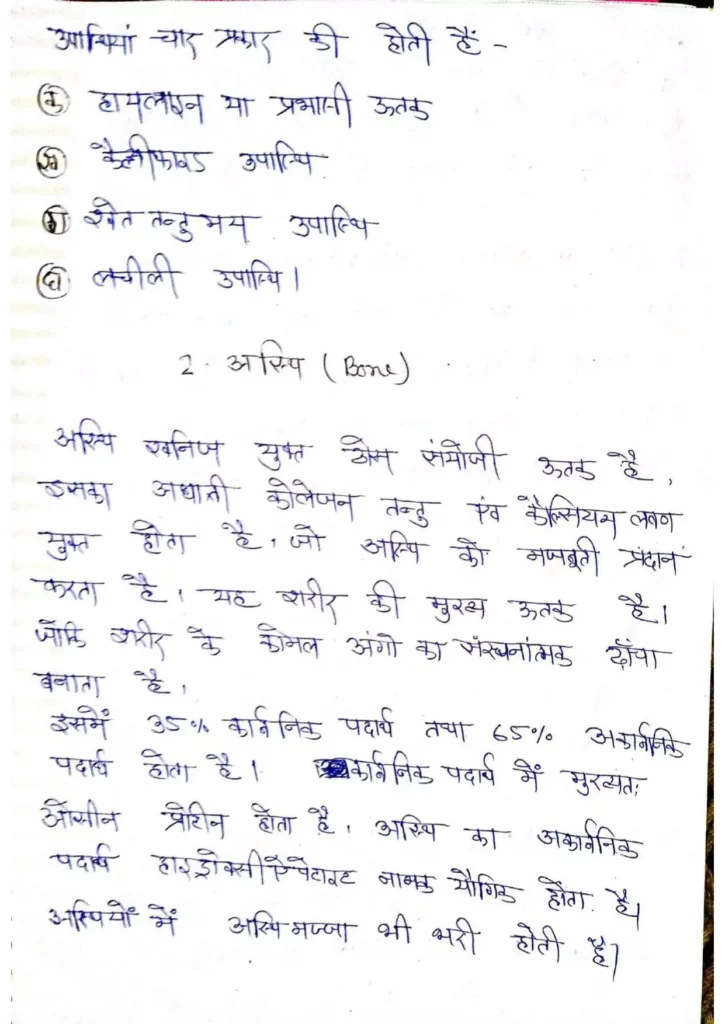 आस्थियां चार प्रकार की होती हैं -
(क) हायलाइन या प्रभासी ऊतक
(ख) कैल्सीफाइड उपास्थि
(ग) श्वेत तन्तुमय उपास्थि
(घ) लचीली उपास्थि।
2. अस्थि (Bone)
अस्थि खनिज युक्त ठोस संयोजी ऊतक है,
इसका अधात्री कोलेजन तन्तु एंव कैल्सियम लवण
युक्त होता है, जो अस्थि को मजबूती प्रदान
करता है, यह शरीर की मुख्य ऊतक है।
जोकि शरीर के कोमल अंगो का संरचनांत्मक ढाँचा
बनाता है,
इसमें 35% कार्बनिक पदार्थ तथा 65% अकार्बनिक
पदार्थ होता है। कार्बनिक पदार्थ में मुख्यतः
ओसीन प्रोटीन होता है, अस्थि का अकार्बनिक
पदार्थ हाइड्रोक्सीऐपेटाइट नामक यौगिक होता है।
अस्थियों में अस्थिमज्जा भी भरी होती है।